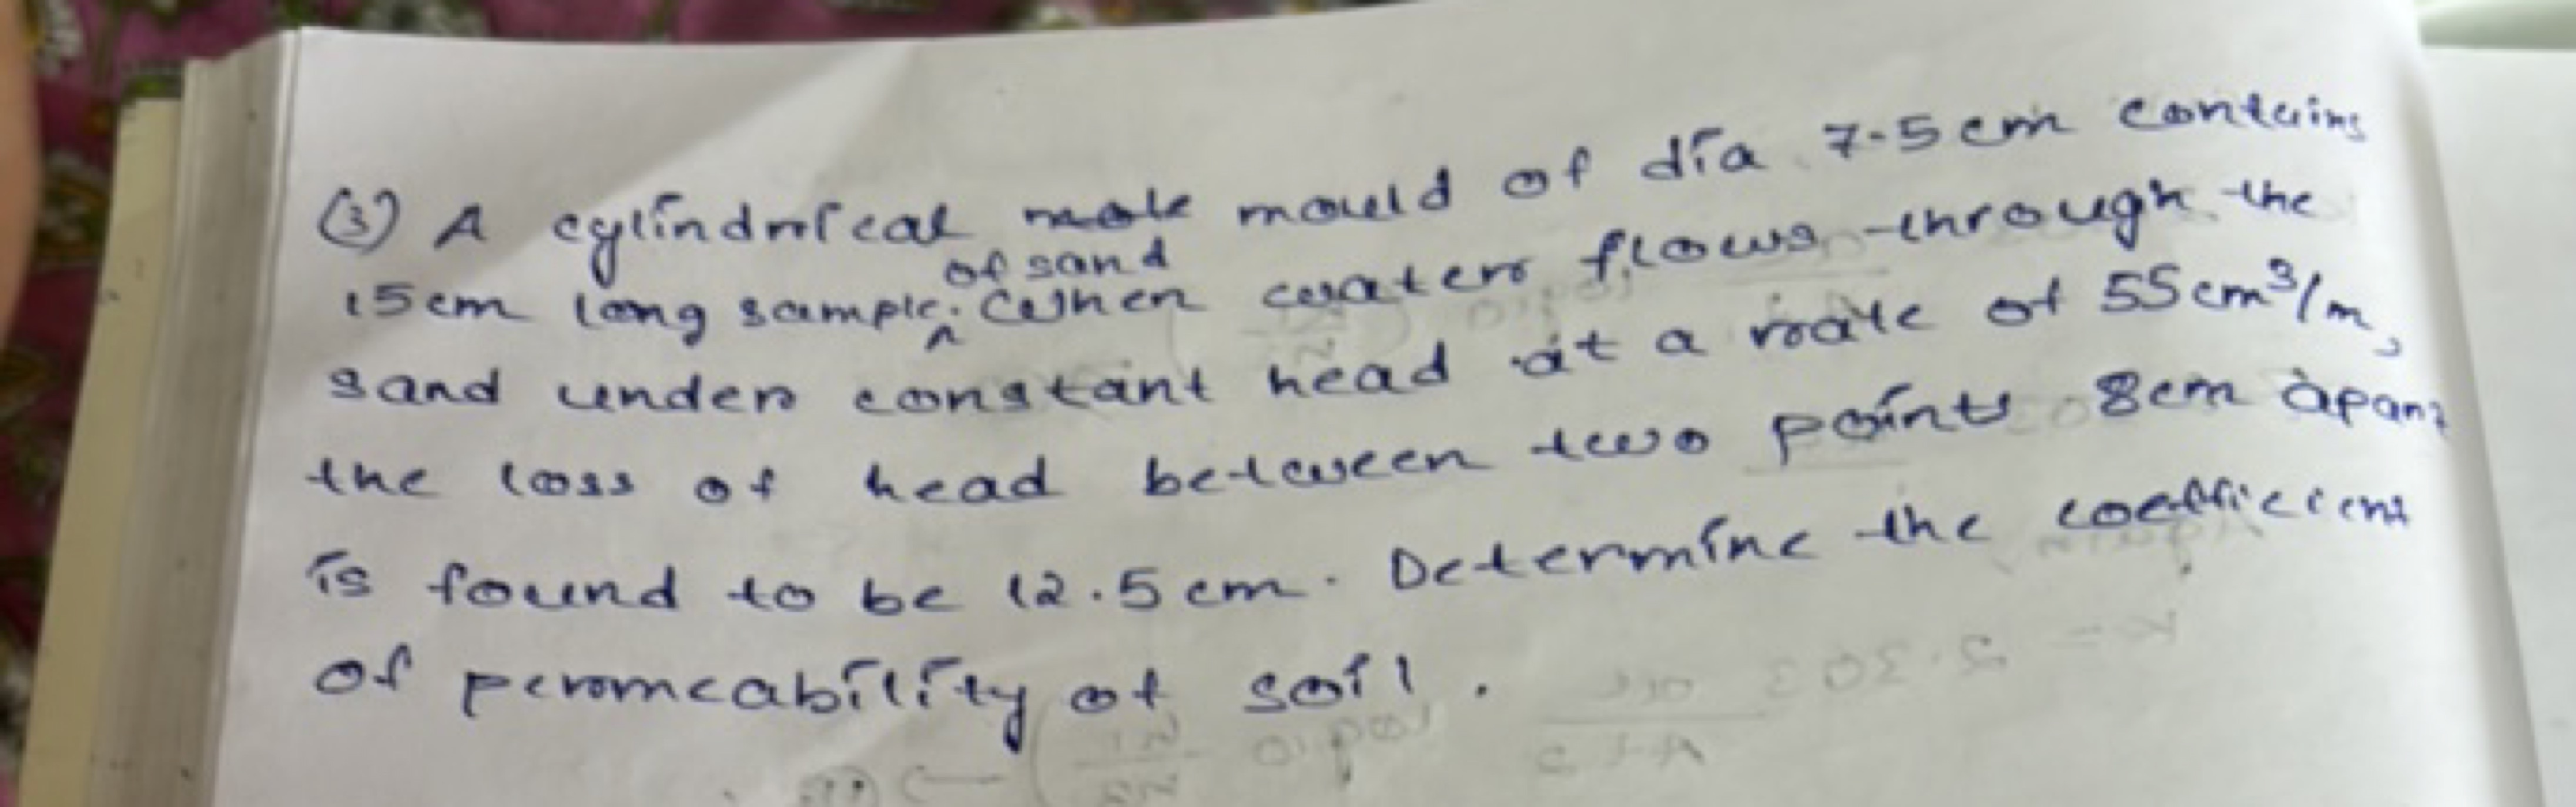 (3) A cylindrical mole mould of dia 7.5 cm contains
of sand
15 cm long sample. When water flows through the
sand under constant head at a rate of 55 cm³/m,
the loss of head between two points 8 cm apart
is found to be 12.5 cm. Determine the coefficient
of permeability of soil.